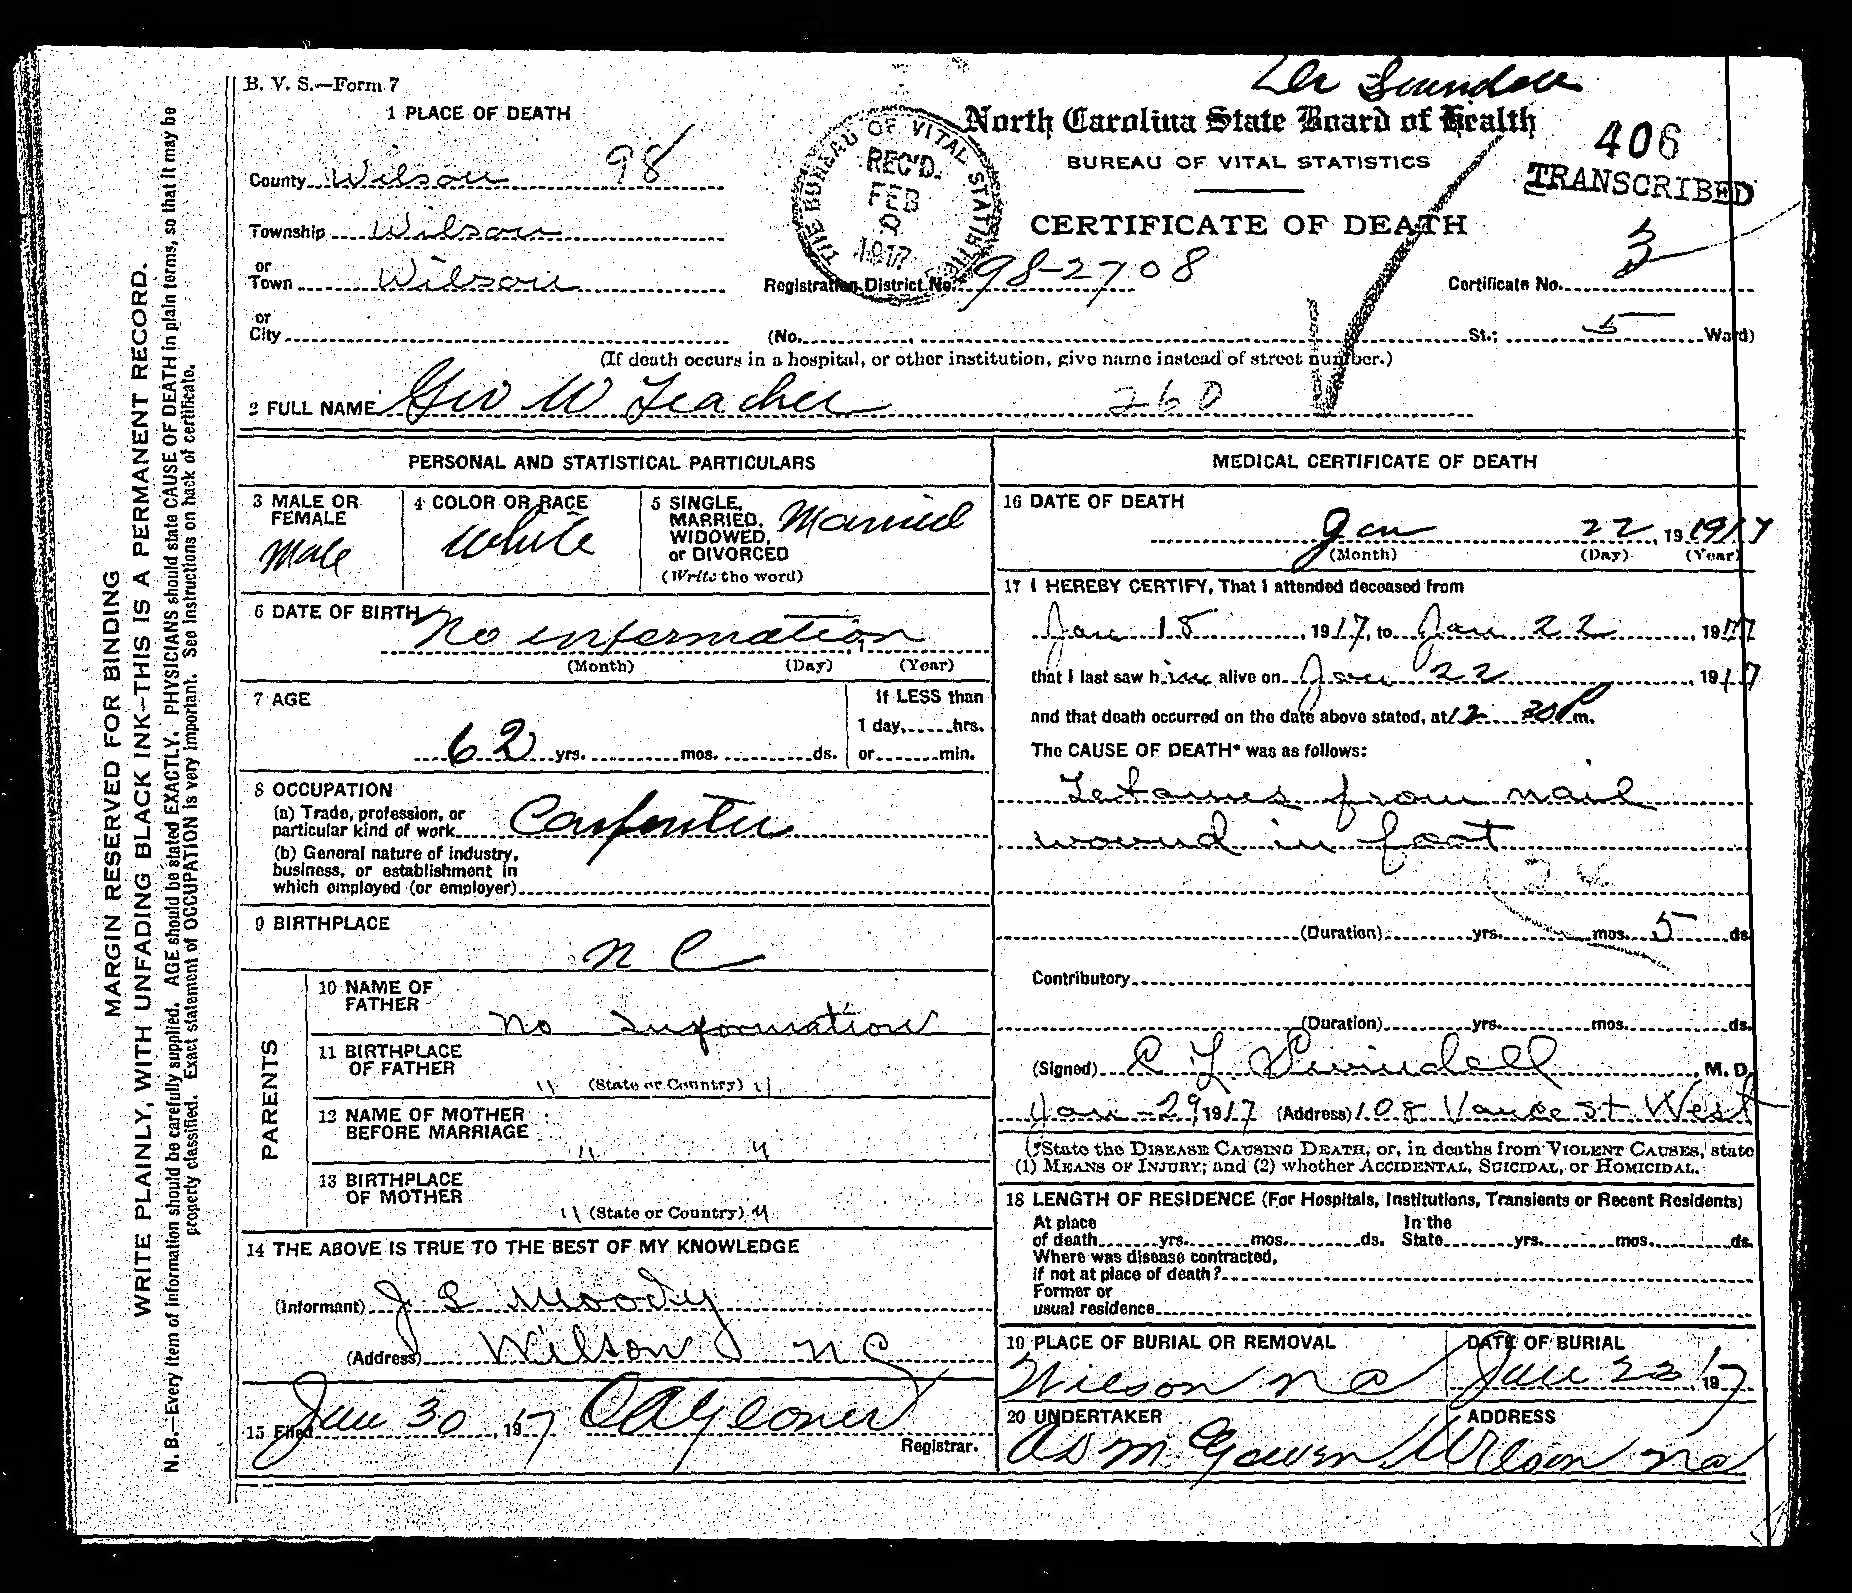 B. V. S.—Form 7
1 PLACE OF DEATH
County Wilson 98
Township Wilson
or
Town Wilson
or
City
THE BUREAU OF VITAL STATISTICS
REC'D.
FEB
1917
Dr
North Carolina State Board of Health
BUREAU OF VITAL STATISTICS
406
TRANSCRIBED
CERTIFICATE OF DEATH
Registration District No. 98-2708
Certificate No. 3
(No. St.; 5 Ward)
(If death occurs in a hospital, or other institution, give name instead of street number.)
2 FULL NAME Geo W Teachee 260
PERSONAL AND STATISTICAL PARTICULARS
3 MALE OR
FEMALE
Male
4 COLOR OR RACE
White
5 SINGLE,
MARRIED,
WIDOWED,
or DIVORCED
(Write the word)
Married
6 DATE OF BIRTH No information
(Month) (Day) (Year)
7 AGE
62 yrs. mos. ds.
If LESS than
1 day, hrs.
or min.
8 OCCUPATION
(a) Trade, profession, or
particular kind of work Carpenter
(b) General nature of industry,
business, or establishment in
which employed (or employer)
9 BIRTHPLACE
N C
PARENTS
10 NAME OF
FATHER
No Information
11 BIRTHPLACE
OF FATHER
" (State or Country) "
12 NAME OF MOTHER
BEFORE MARRIAGE
" "
13 BIRTHPLACE
OF MOTHER
" (State or Country) "
14 THE ABOVE IS TRUE TO THE BEST OF MY KNOWLEDGE
(Informant) J L Moody
(Address) Wilson N C
15 Filed Jan 30, 1917
Registrar.
MEDICAL CERTIFICATE OF DEATH
16 DATE OF DEATH
Jan 22, 19 1917
(Month) (Day) (Year)
17 I HEREBY CERTIFY, That I attended deceased from
Jan 18, 1917, to Jan 22, 1917
that I last saw him alive on Jan 22, 1917
and that death occurred on the date above stated, at 12 30 P m.
The CAUSE OF DEATH* was as follows:
Tetanus from nail
wound in foot
(Duration) yrs. mos. 5 ds.
Contributory
(Duration) yrs. mos. ds.
(Signed) C L Swindell, M. D.
Jan - 29, 1917 (Address) 108 Vance St West
(*State the DISEASE CAUSING DEATH, or, in deaths from VIOLENT CAUSES, state
(1) MEANS OF INJURY; and (2) whether ACCIDENTAL, SUICIDAL, or HOMICIDAL.
18 LENGTH OF RESIDENCE (For Hospitals, Institutions, Transients or Recent Residents)
At place
of death yrs. mos. ds.
In the
State yrs. mos. ds.
Where was disease contracted,
if not at place of death?
Former or
usual residence
19 PLACE OF BURIAL OR REMOVAL
Wilson N C
DATE OF BURIAL
Jan 23, 1917
20 UNDERTAKER
ADDRESS
Wilson N C
MARGIN RESERVED FOR BINDING
WRITE PLAINLY, WITH UNFADING BLACK INK—THIS IS A PERMANENT RECORD.
N. B.—Every item of information should be carefully supplied. AGE should be stated EXACTLY. PHYSICIANS should state CAUSE OF DEATH in plain terms, so that it may be
properly classified. Exact statement of OCCUPATION is very important. See instructions on back of certificate.